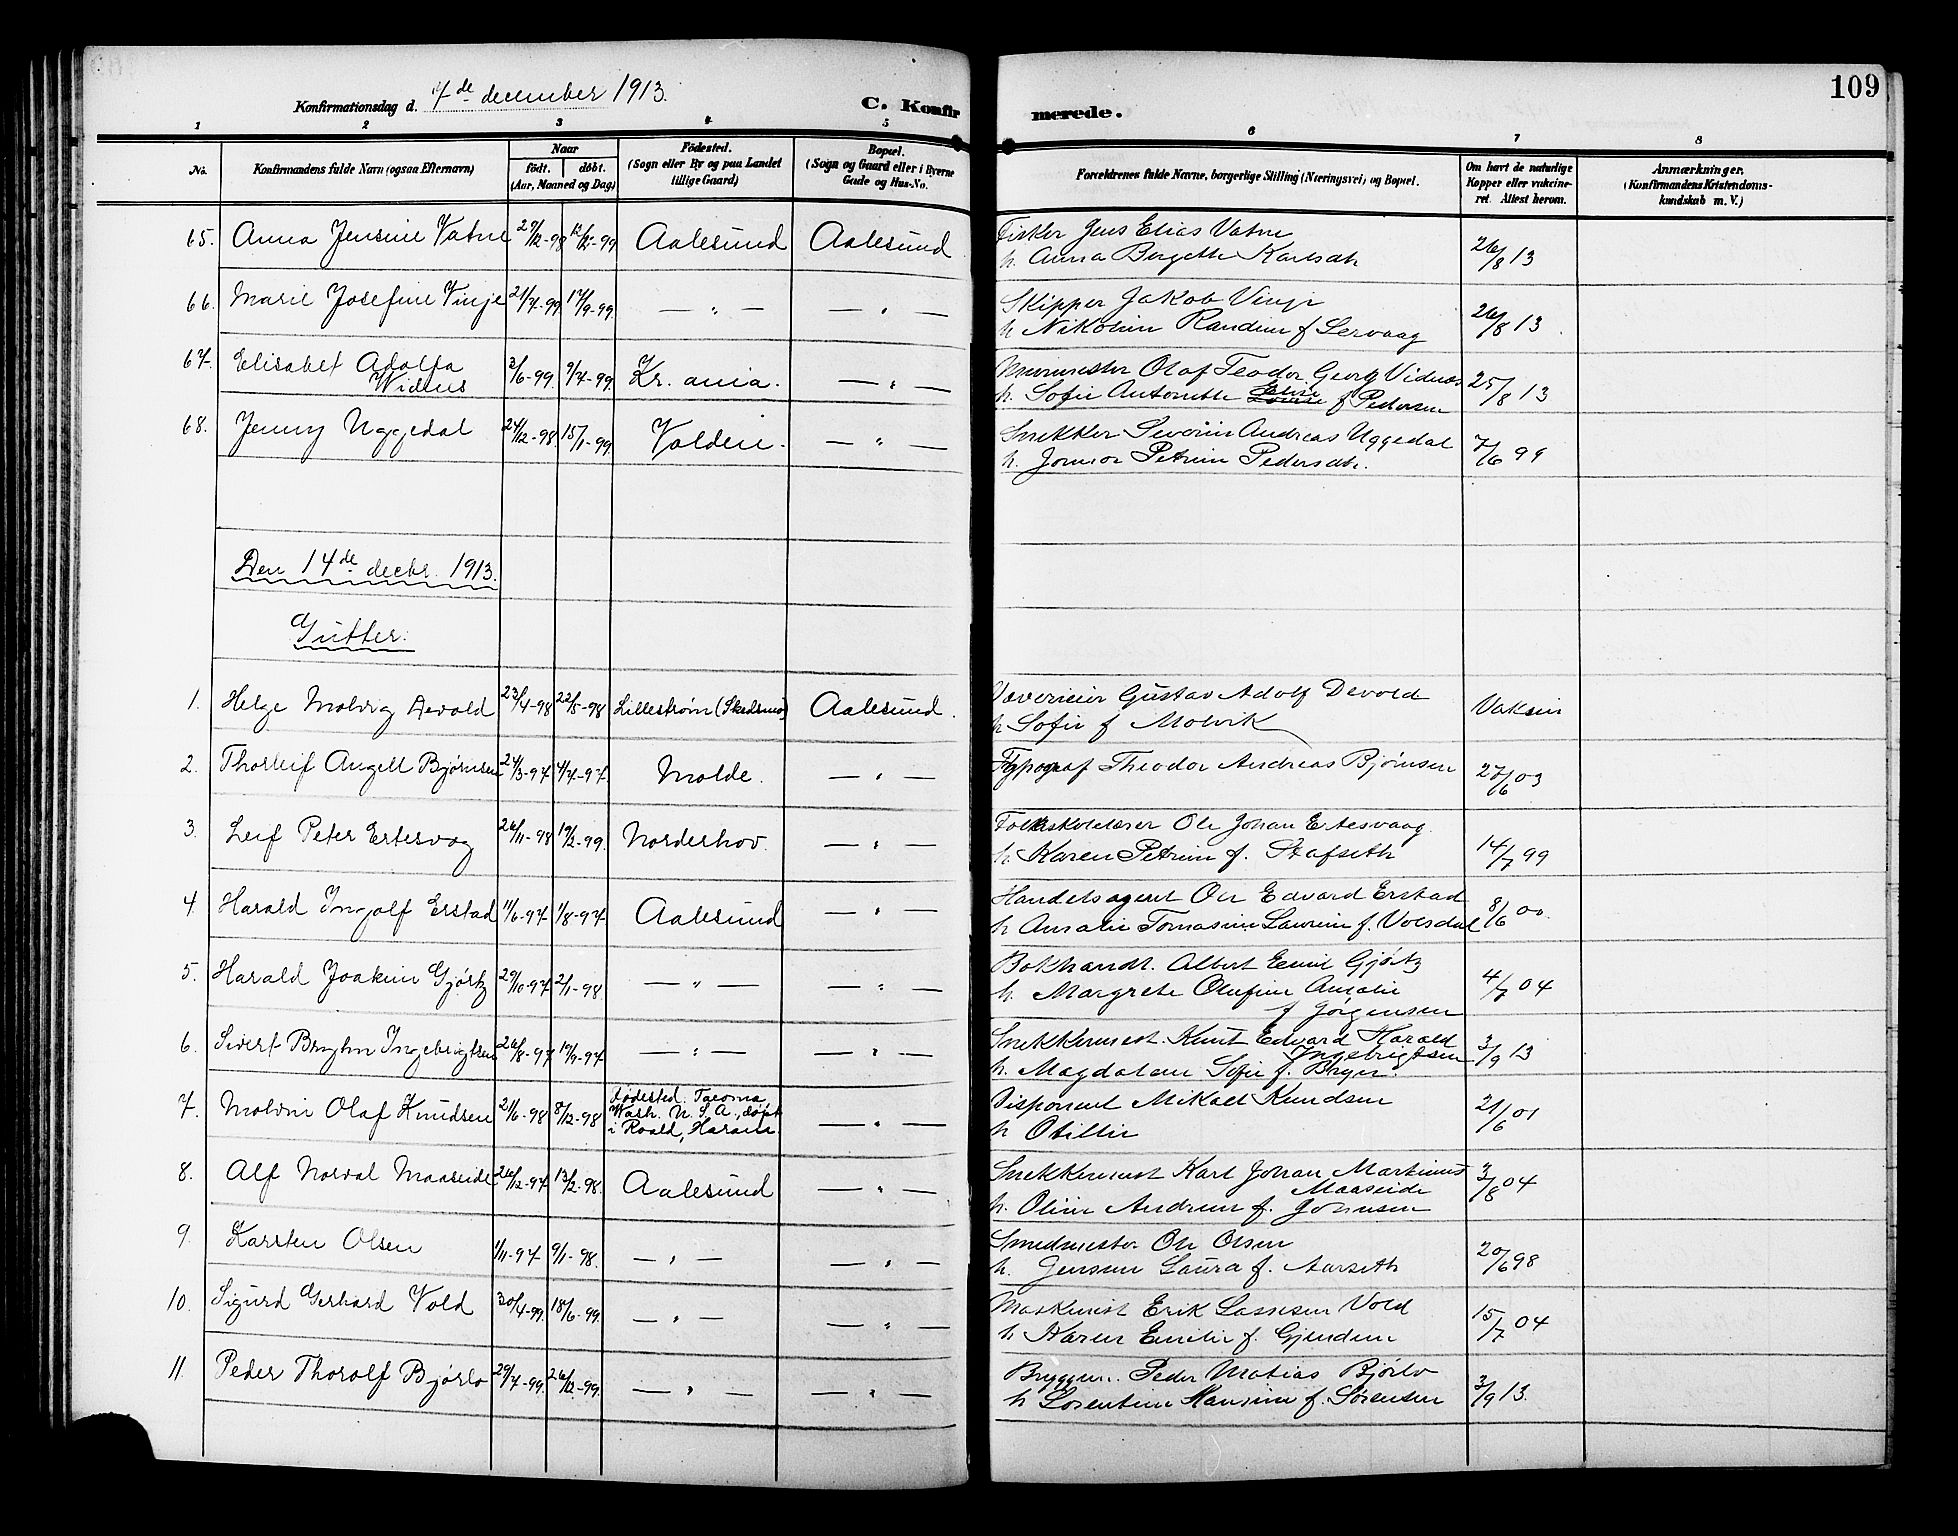 109
Konfirmationsdag d. 7de december 1913.
C. Konfirmerede.
1 2 3 4 5 6 7 8
No.
Konfirmandens fulde Navn (ogsaa Efternavn)
Naar
født. døbt.
(Aar, Maaned og Dag)
Fødested.
(Sogn eller By og paa Landet
tillige Gaard)
Bopæl.
(Sogn og Gaard eller i Byerne
Gade og Hus-No.
Forældrenes fulde Navne, borgerlige Stilling (Næringsvei) og Bopæl.
Om havt de naturlige
Kopper eller vakcine-
ret. Attest herom.
Anmærkninger.
(Konfirmandens Kristendoms-
kundskab m. V.)
65. Anna Jensine Vatne 29/12-98 Aalesund Aalesund Fisker Jens Elias Vatne 26/8 13
h. Anna Bergette Karlsdtr.
66. Marie Josefine Vinje 21/7-99 17/9-99 — " — — " — Skipper Jakob Vinje 26/8 13
h Nikoline Randine f Servaag
67. Elisabet Adolfa 3/6-99 9/7-99 Kr. ania. — " — Murmester Olaf Teodor Georg Vidnes 25/8 13
Widnes h. Sofie Antonette Elise f Pedersen
68. Jenny Uggedal 24/12-98 15/1-99 Volden. — " — Snekker Severin Andreas Uggedal 7/6 99
h. Petrine Pedersdtr.
Den 14de decbr. 1913.
Gutter.
1. Helge Molvig Devold 23/4-98 22/5-98 Lillestrøm (Skedsmo) Aalesund. Vævericier Gustav Adolf Devold Vaksin
h Sofie f Molvik
2. Thorleif Angell Bjørnsen 24/3-97 4/7-97 Molde. — " — Typograf Theodor Andreas Bjørnsen 27/6 03
3. Leif Peter Ertesvog 26/11-98 19/2-99 Norderhov. — " — Folkeskolelærer Ole Johan Ertesvaag 14/7 99
h. Karen Petrine f. Stafseth
4. Harald Ingolf Erstad 11/6-97 1/8-97 Aalesund — " — Handelsagent Ole Edvard Erstad 8/6 00.
h Amalie Tomasine Laurine f. Volsdal
5. Harald Joakim Gjørtz 29/10-97 2/1-98 — " — — " — Bokhandl. Albert Emil Gjørtz 4/7 04
h. Margrete Olufine Amalie
f Jørgensen
6. Sivert Bryhn Ingebrigtsen 26/8-97 19/9-97 — " — — " — Snekkermest. Knut Edvard Harald 3/9 13
Ingebrigtsen
h. Magdalene Sofie f.
7. Molvin Olaf Knudsen 21/6-98 8/12-98 Fødested: Tacoma — " — Disponent Mikael Knudsen 21/6 01
Wash. U. S. A., døpt
i Roald, Haram. h Otillie
8. Alf Norval Maaseide 26/12-97 13/2-98. Aalesund — " — Snekkermest Karl Johan Martinus 3/8 04
Maaseide
h. Oline Andrine f. Johnsen
9. Karsten Olsen 1/11-97 9/1-98. — " — — " — Smedmester Ole Olsen 20/6 98
h. Jensine Laura f. Aarseth
10. Sigurd Gerhard Vold 30/4-99. 18/6-99. — " — — " — Maskinist Erik Lassesen Vold 15/7 04
h Karen Emelie f. Gjendem
11. Peder Thorolf Bjørlo 29/7-99. 26/12-99. — " — — " — Peder Matias Bjørlo 3/9 13.
h Lorentine Hansine f. Sørensen